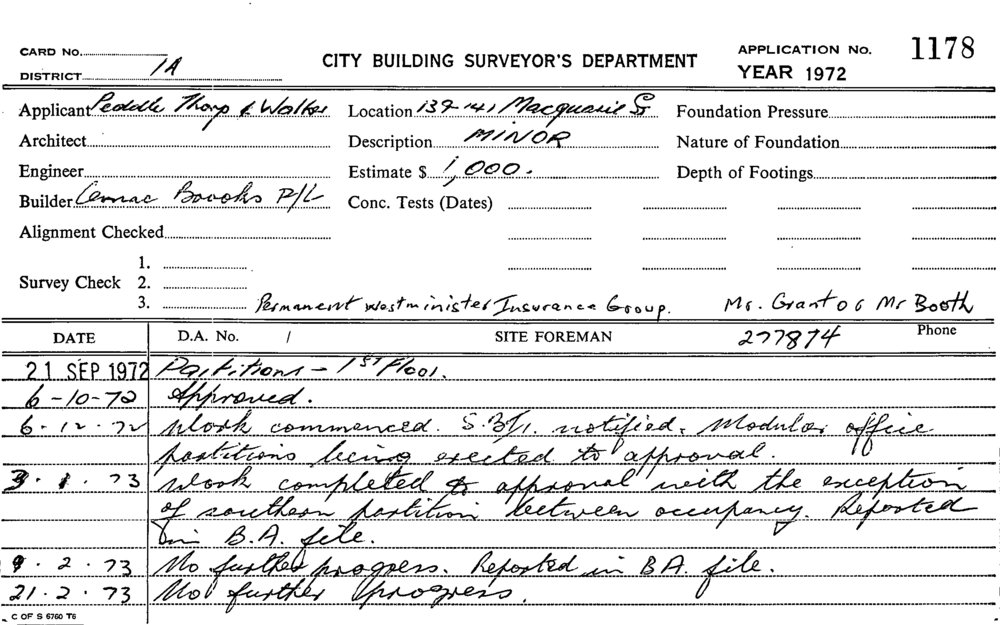 CARD No.
DISTRICT 1A
CITY BUILDING SURVEYOR'S DEPARTMENT
APPLICATION No. 1178
YEAR 1972
Applicant Peddle Thorp & Walker Location 139-141 Macquarie St Foundation Pressure
Architect Description MINOR Nature of Foundation
Engineer Estimate $ 1,000. Depth of Footings
Builder Cemac Brooks P/L Conc. Tests (Dates)
Alignment Checked
1.
Survey Check 2.
3. Permanent westminister Insurance Group. Mr. Grant or Mr Booth
DATE D.A. No. / SITE FOREMAN 277874 Phone
21 SEP 1972 Partitions - 1st Floor.
6-10-72 Approved.
6.12.72 Work commenced. S.B.I. notified. Modular office
partitions being erected to approval.
3.1.73 Work completed to approval with the exception
of southern partition between occupancy. Reported
in B.A. file.
9.2.73 No further progress. Reported in B.A. file.
21.2.73 No further progress.
C OF S 6760 T6